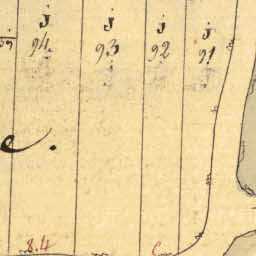 J J J J
94 93 92 91
e.
8.4